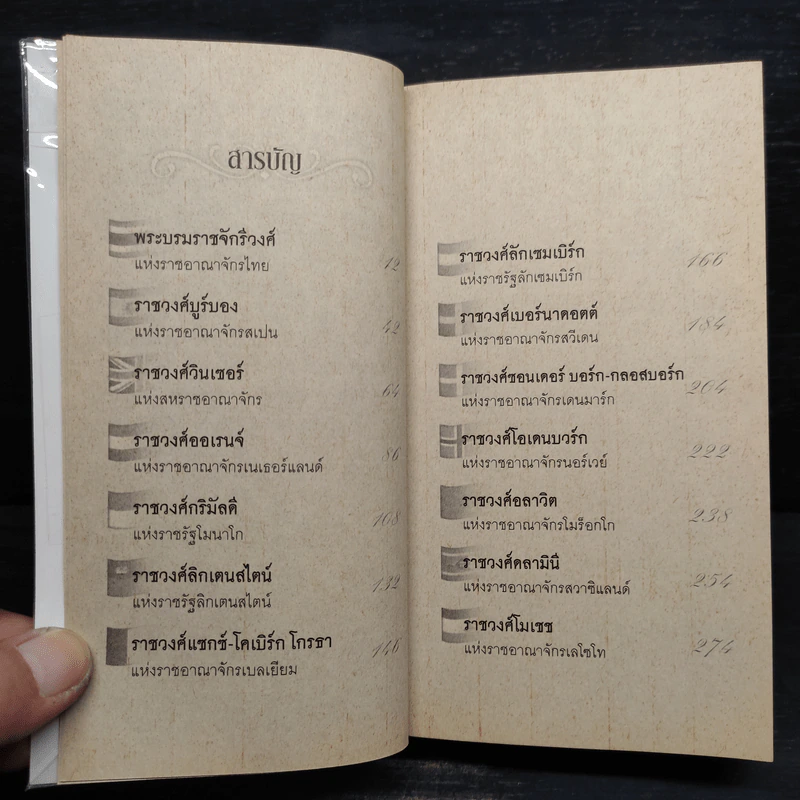 สารบัญ
พระบรมราชจักรีวงศ์
แห่งราชอาณาจักรไทย 12
ราชวงศ์บูร์บอง
แห่งราชอาณาจักรสเปน 42
ราชวงศ์วินเซอร์
แห่งสหราชอาณาจักร 64
ราชวงศ์ออเรนจ์
แห่งราชอาณาจักรเนเธอร์แลนด์ 86
ราชวงศ์กริมัลดี
แห่งราชรัฐโมนาโก 108
ราชวงศ์ลิกเตนสไตน์
แห่งราชรัฐลิกเตนสไตน์ 132
ราชวงศ์แซกซ์-โคเบิร์ก โกรธา
แห่งราชอาณาจักรเบลเยียม 146
ราชวงศ์ลักเซมเบิร์ก
แห่งราชรัฐลักเซมเบิร์ก 166
ราชวงศ์เบอร์นาดอตต์
แห่งราชอาณาจักรสวีเดน 184
ราชวงศ์ซอนเดอร์ บอร์ก-กลอสบอร์ก
แห่งราชอาณาจักรเดนมาร์ก 204
ราชวงศ์โอเดนบวร์ก
แห่งราชอาณาจักรนอร์เวย์ 222
ราชวงศ์อลาวิต
แห่งราชอาณาจักรโมร็อกโก 238
ราชวงศ์ดลามินี
แห่งราชอาณาจักรสวาซิแลนด์ 254
ราชวงศ์โมเชช
แห่งราชอาณาจักรเลโซโท 274